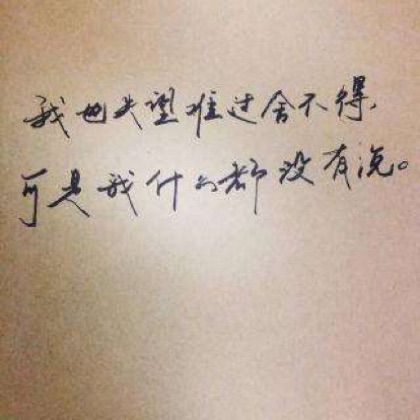 我也失望难过舍不得,
可是我什么都没有说。